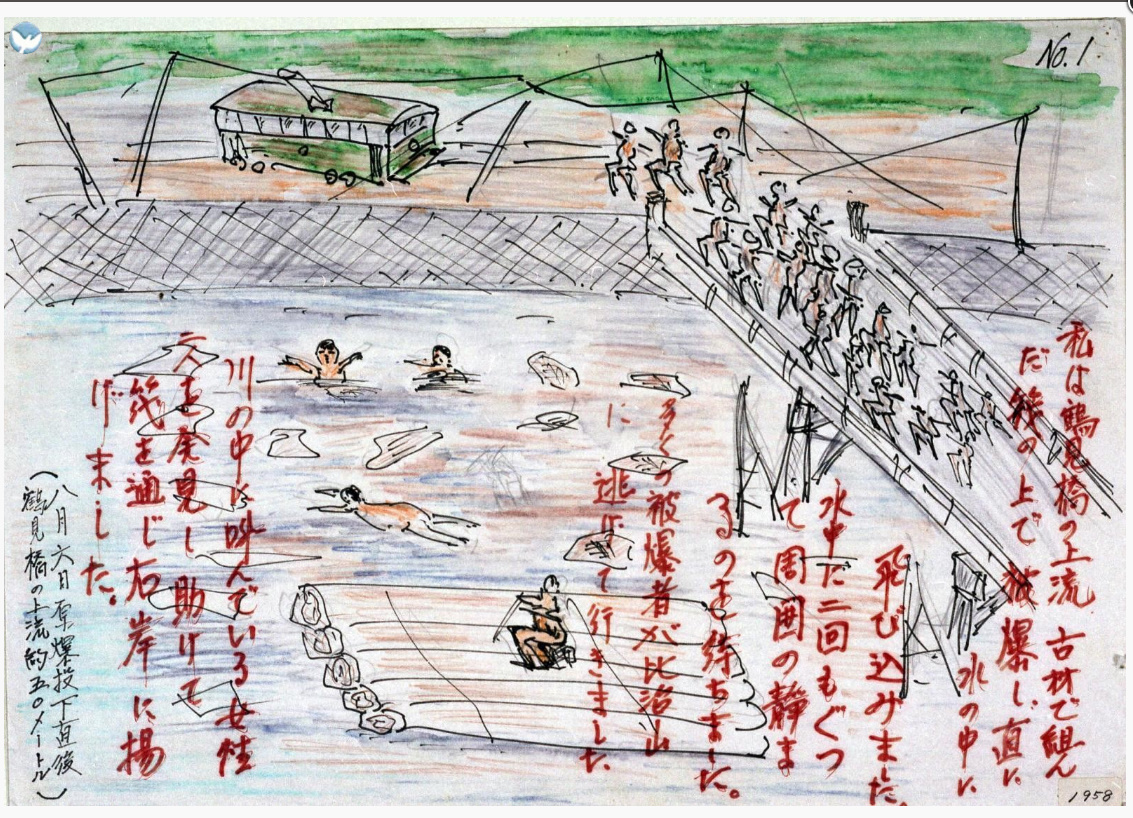 No.1
私は鶴見橋の上流 古材で組ん
だ筏の上で被爆し、直に
水の中に
飛び込みました。
水中に二回もぐつ
て周囲の静ま
るのを待ちました。
多くの被爆者が比治山
に逃げて行きました
川の中に叫んでいる女性
二人を発見し助けて
筏を通じ右岸に揚
げました。
(八月六日原爆投下直後
鶴見橋の上流約五〇メートル)
1958